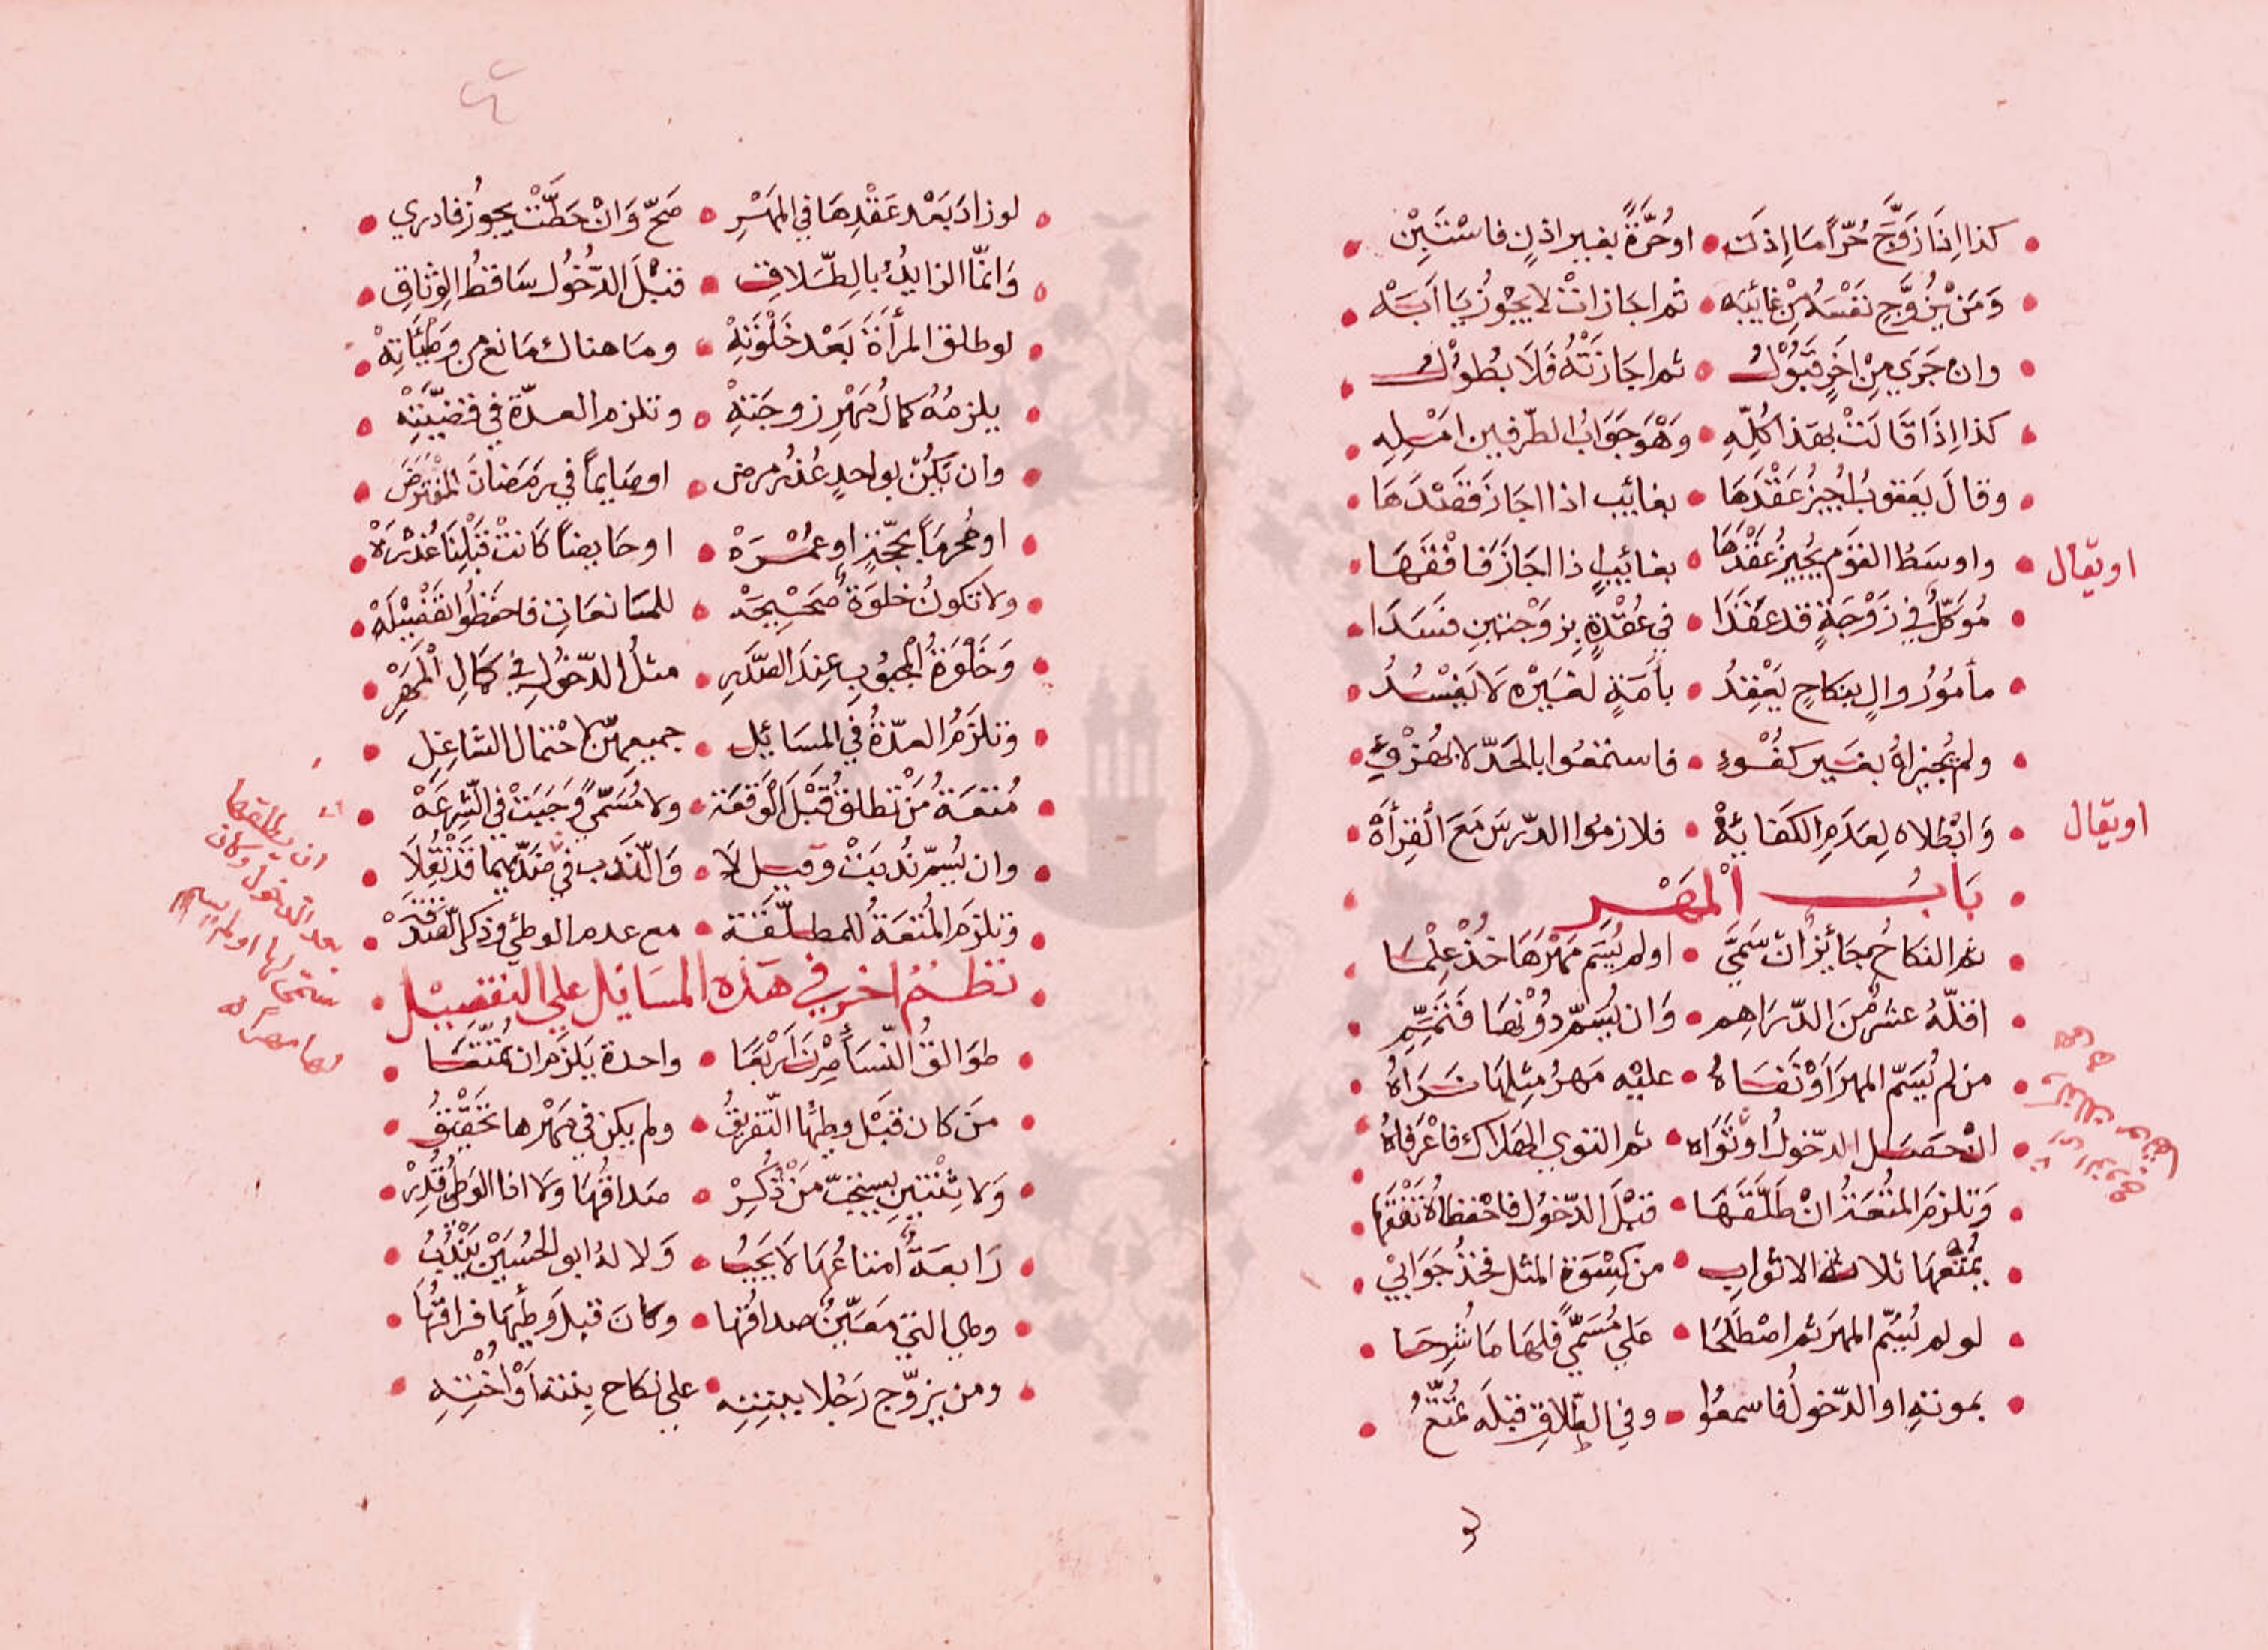 كذا اِذَا زَوَّجَ حُرّاً مَا اِذِنَ • اوحُرَّةً بغير اذنٍ فاسْتَبِنْ
وَمَنْ يُزَوِّج نَفْسَهُ مِنْ غائِبَه • ثم اجَازاتْ لا يَجُوزُ يَا اَبَهْ
وان جَرَي مِنْ اخَرٍ قَبُوْلُ • ثم اجَازَتْهُ فَلَا بُطُوْلُ
كذا اِذَا قَالَتْ بهَذا كُلِّهِ • وَهْوَ جَوَابُ الطّرفين امْلِهِ
وقالَ يَعقوبُ يُجِيزُ عَقْدَهَا • بغائِب اذا اجَازَ قَصْدَهَا
واوسَطُ القَوْمِ يُجِيْزُ عَقْدَهَا • بغائبٍ اذا اجَازَ فَافْقَهَا
او يقال
مُوَكَّلٌ في زَوْجَةٍ قد عَقَدَا • في عُقْدَةٍ بِزَوْجتين فَسَدَا
مأمُوْرُ والٍ بنِكاحٍ يَعْقِدُ • بأمَةٍ لغَيْرِهِ لَا يَفْسُدُ
ولم يُجِيزاهُ بغَير كفُْوءِ • فاستمعُوا بالجَدّ لا بالهُزْوءِ
وَابْطلاه لِعَدَمِ الكفائهْ • فلازموا الدّرسَ مَعَ القِرأهْ
او يقال
بَابُ اْلمَهْرِ
ثم النكاحُ جَائِزٌ ان سَمَّيَ • اولم يُسَمِّ مَهْرَهَا خُذْ عِلْمَا
اقلّهُ عشرٌ مِنَ الدّرَاهِم • وَان يُسَمِّ دُوْنهَا فَتَمِّمِ
من لم يُسَمّ المهرَ اَوْ نَفَاهُ • عليْه مَهرُ مِثلِهَا نَرَاهُ
انْ حَصَل الدّخولُ اوْ تَوَاه • ثم التوي الهَلاك فاعْرَفَاهُ
وَتلزم المُتْعَةُ انْ طَلّقَهَا • قبْلَ الدّخُول فاحْفظاهُ تَفْقَهَا
يُمَتّعُهَا ثلاثة الاثوابِ • من كِسْوَةِ المثل فخُذْ جَوَابيْ
لو لم يُسَمِّ المهرَ ثم اصْطَلَحَا • عَلي مُسَمّيً فلهَا مَا شُرِحَا
بموتهِ او الدّخولُ فاسمعُوا • وفي الطّلاقِ قبْلَه تُمَتّعُ
لو زادَ بَعْد عَقْدِهَا في المَهْرِ • صَحّ وَانْ حَطَّتْ يجوزُ فادري
وَانمّا الزايدُ بالطّلاقِ • قبْلَ الدّخُول سَاقطُ الوِثاقِ
لو طلق المرأةَ بَعْد خَلْوَتِهْ • ومَا هناك مَانع من وَطْئَاتِهْ
يلزمُهُ كمالُ مَهْرِ زوجَتِهْ • وتلزم العدّة في قضيّتِهْ
وان يَكُنْ بواحدٍ عُذْرُ مرض • اوصَايماً في رَمَضانَ المُفْتَرَضَ
او مُحْرِمَاً بحَجّةٍ او عُمْرَهْ • او حَايضاً كَانتْ قَبْلِنَا عُذْرَهْ
ولا تكونُ خلوَةً صَحْيِحَه • للمَانعَانِ فاحفَظُوا تفْضِيْلَهْ
وَخَلْوَةُ المجبُوبِ عِندَ الصّدَرِ • مثلُ الدّخُوْلِ في كَمَالِ المَهْرِ
وتلزَمُ العدّةُ في المسَائِلِ • جميعِهنّ لاحْتمال الشاغِلِ
مُتعَةُ مَنْ تَطلقُ قَبْلَ الوَقعَه • ولا مُسَمّيً وَجَبَتْ في الشِّرعَهْ
وان يُسَمّ نُدبَتْ وقيل لا • وَالنّدب في ضدّيهما قَدْ نُقِلَا
وتلزَم المُتعَةُ للمطلّقَة • مع عدم الوطئ وذكر الصّدَقَهْ
نظمٌ اخر في هَذه المسَايْل علي التفصيْل
طوَالقُ النّسَأ صِرْنَ اَرْبَعَا • واحدة يَلزَم ان تُمَتّعَا
مَن كان قبْل وطئِها التّفريقُ • ولم يكن في مَهْرها تَحْقِيْقُ
وَلا ثْنتينِ يسْتحبّ مَنْ ذُكِرْ • صداقُهَا ولا اذا الوَطئُ قُدِرْ
رَابعَةٌ امتاعُهَا لَا يَجِبُ • وَلا لهُ ابو الحُسَيْنِ يَنْدُبُ
وهي التي مَعَيّنٌ صداقُها • وكانَ قبلَ وَطئِهَا فراقُهَا
ومن يزوّج رَجُلا ببنتِهِ • علي نكاح بِنته اَوْ اُخْتِهِ
ان يطلقها
بعد الدخول وكان
سمّى لها او لم يسم
لها مهرا